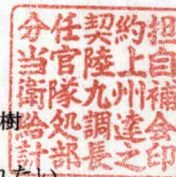 分任契約担
当官陸上自
衛隊九州補
給処調達会
計部長之印
樹
れたい